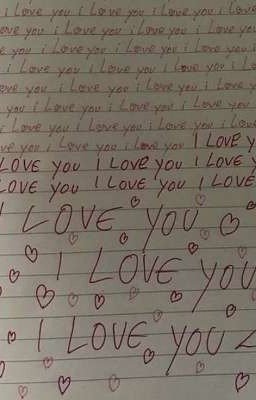 i Love you i Love you i Love you i Love
ove you i Love you i Love you i Love you
i Love you i Love you i Love you i Love
e you i Love you i Love you i Love you
i Love you i Love you i Love you i Love
Love you i Love you i Love you i Love you
you i Love you i Love you i Love you
i Love you i Love you i Love you i Love
ve you i Love you i Love you I Love y
LOVE you I LOVE you I LOVE y
LOVE you I LOVE you I LOVE
I LOVE YOU
I LOVE YOU
I LOVE YOU